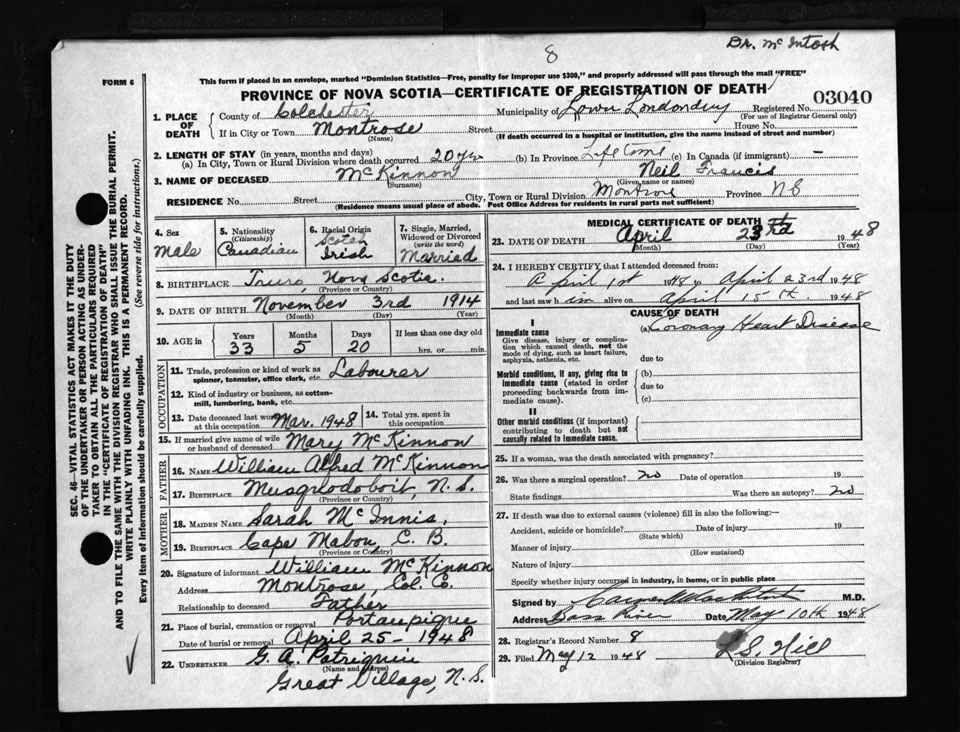 Dr. McIntosh
8
FORM 6
This form if placed in an envelope, marked "Dominion Statistics—Free, penalty for improper use $300," and properly addressed will pass through the mail "FREE"
PROVINCE OF NOVA SCOTIA—CERTIFICATE OF REGISTRATION OF DEATH
03040
1. PLACE OF DEATH County of Colchester Municipality of Lower Londonderry Registered No.
(For use of Registrar General only)
If in City or Town Montrose Street House No.
(Name) (If death occurred in a hospital or institution, give the name instead of street and number)
2. LENGTH OF STAY (in years, months and days)
(a) In City, Town or Rural Division where death occurred 20 yrs (b) In Province Life time (c) In Canada (if immigrant) —
3. NAME OF DECEASED McKinnon Neil Francis
(Surname) (Given name or names)
RESIDENCE No. Street City, Town or Rural Division Montrose Province N S
(Residence means usual place of abode. Post Office Address for residents in rural parts not sufficient)
4. Sex Male
5. Nationality (Citizenship) Canadian
6. Racial Origin Scotch Irish
7. Single, Married, Widowed or Divorced (write the word) Married
8. BIRTHPLACE Truro, Nova Scotia.
(Province or Country)
9. DATE OF BIRTH November 3rd 1914
(Month) (Day) (Year)
10. AGE in Years 33 Months 5 Days 20 If less than one day old
hrs. or min.
OCCUPATION
11. Trade, profession or kind of work as spinner, teamster, office clerk, etc. Labourer
12. Kind of industry or business, as cotton-mill, lumbering, bank, etc.
13. Date deceased last worked at this occupation Mar. 1948 14. Total yrs. spent in this occupation
15. If married give name of wife or husband of deceased Mary McKinnon
FATHER
16. NAME William Alfred McKinnon
17. BIRTHPLACE Musquodoboit, N. S.
(Province or Country)
MOTHER
18. MAIDEN NAME Sarah McInnis,
19. BIRTHPLACE Cape Mabou, C. B.
(Province or Country)
20. Signature of informant William McKinnon
Address Montrose, Col. C.
Relationship to deceased Father
21. Place of burial, cremation or removal Portaupique
Date of burial or removal April 25 - 1948
22. UNDERTAKER G. A. Patriquin
(Name and address)
Great Village, N. S.
MEDICAL CERTIFICATE OF DEATH
23. DATE OF DEATH April 23rd 1948
(Month) (Day) (Year)
24. I HEREBY CERTIFY that I attended deceased from:
April 1st 1948 to April 23rd 1948
and last saw him alive on April 15th. 1948
CAUSE OF DEATH
I
Immediate cause (a) Coronary Heart Disease
Give disease, injury or complication which caused death, not the mode of dying, such as heart failure, asphyxia, asthenia, etc.
due to
Morbid conditions, if any, giving rise to immediate cause (stated in order proceeding backwards from immediate cause).
(b)
due to
(c)
II
Other morbid conditions (if important) contributing to death but not causally related to immediate cause.
25. If a woman, was the death associated with pregnancy?
26. Was there a surgical operation? no Date of operation 19
State findings Was there an autopsy? no
27. If death was due to external causes (violence) fill in also the following:—
Accident, suicide or homicide? Date of injury 19
(State which)
Manner of injury
(How sustained)
Nature of injury
Specify whether injury occurred in industry, in home, or in public place
Signed by M.D.
Address Bass River Date May 10th 1948
28. Registrar's Record Number 8
29. Filed May 12 1948 L S. Hill
(Division Registrar)
SEC. 46—VITAL STATISTICS ACT MAKES IT THE DUTY
OF THE UNDERTAKER OR PERSON ACTING AS UNDER-
TAKER TO OBTAIN ALL THE PARTICULARS REQUIRED
IN THE "CERTIFICATE OF REGISTRATION OF DEATH"
AND TO FILE THE SAME WITH THE DIVISION REGISTRAR WHO SHALL ISSUE THE BURIAL PERMIT.
WRITE PLAINLY WITH UNFADING INK. THIS IS A PERMANENT RECORD.
Every item of Information should be carefully supplied. (See reverse side for instructions.)